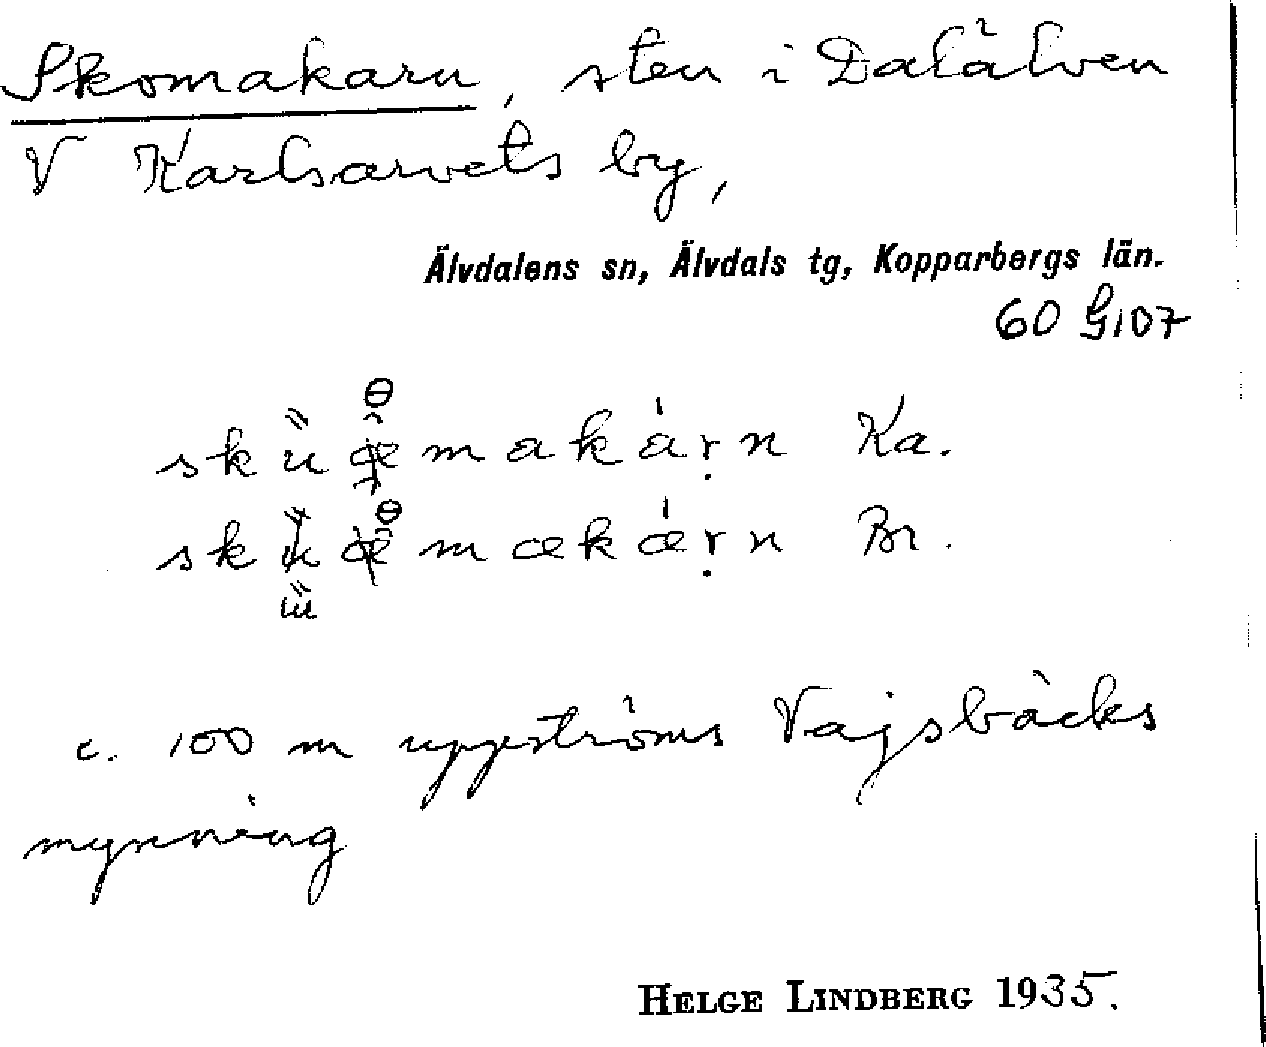 Skomakarn, sten i Dalälven
V Karlsarvets by,
Älvdalens sn, Älvdals tg, Kopparbergs län.
60 G107
makárn Ka.
mækǽrn Br.
c. 100 m uppströms Vajsbäcks
mynning
HELGE LINDBERG 1935.